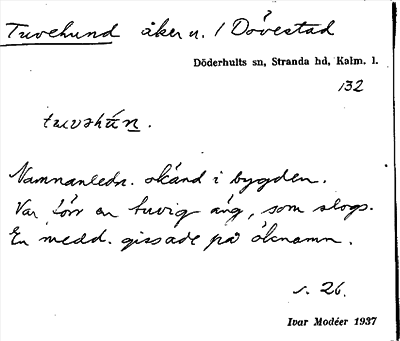 Tuvehund åker u. / Dövestad
Döderhults sn, Stranda hd, Kalm. l.
132
tuvəhún.
Namnanledn. okänd i bygden.
Var förr en tuvig äng, som slogs.
En medd. gissade på öknamn.
s. 26.
Ivar Modéer 1937